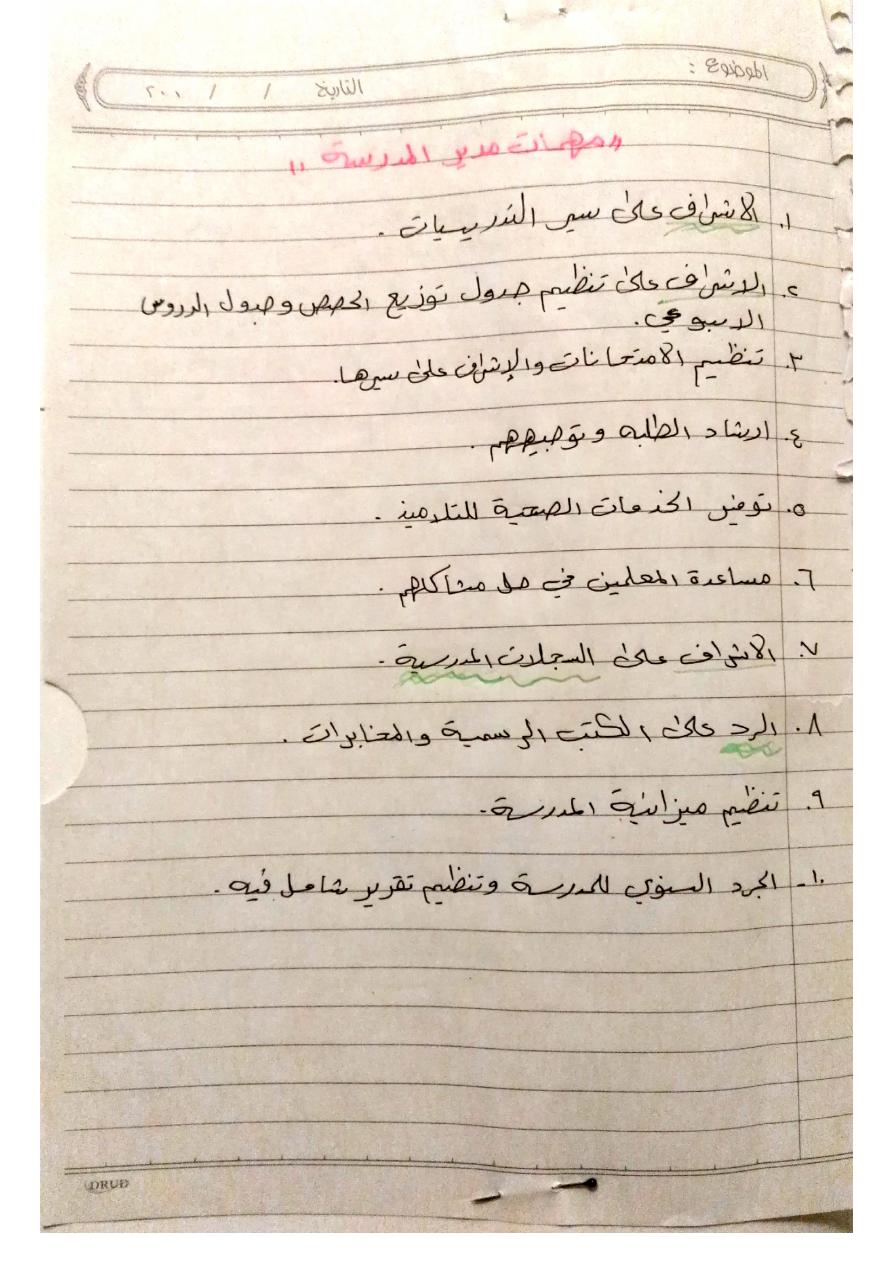 الموضوع :
التاريخ / / ٢٠٠١
"مهمات مدير المدرسة"
١. الاشراف على سير التدريسيات .
٢. الاشراف على تنظيم جدول توزيع الحصص وجدول الدروس
الاسبوعي.
٣. تنظيم الامتحانات والإشراف على سيرها.
٤. ارشاد الطلبه وتوجيههم .
٥. توفير الخدمات الصحية للتلاميذ .
٦. مساعدة المعلمين في حل مشاكلهم .
٧. الاشراف على السجلات المدرسية .
٨. الرد على الكتب الرسمية والمخابرات .
٩. تنظيم ميزانية المدرسة .
١٠- الجرد السنوي للمدرسة وتنظيم تقرير شامل فيه .
DRUD